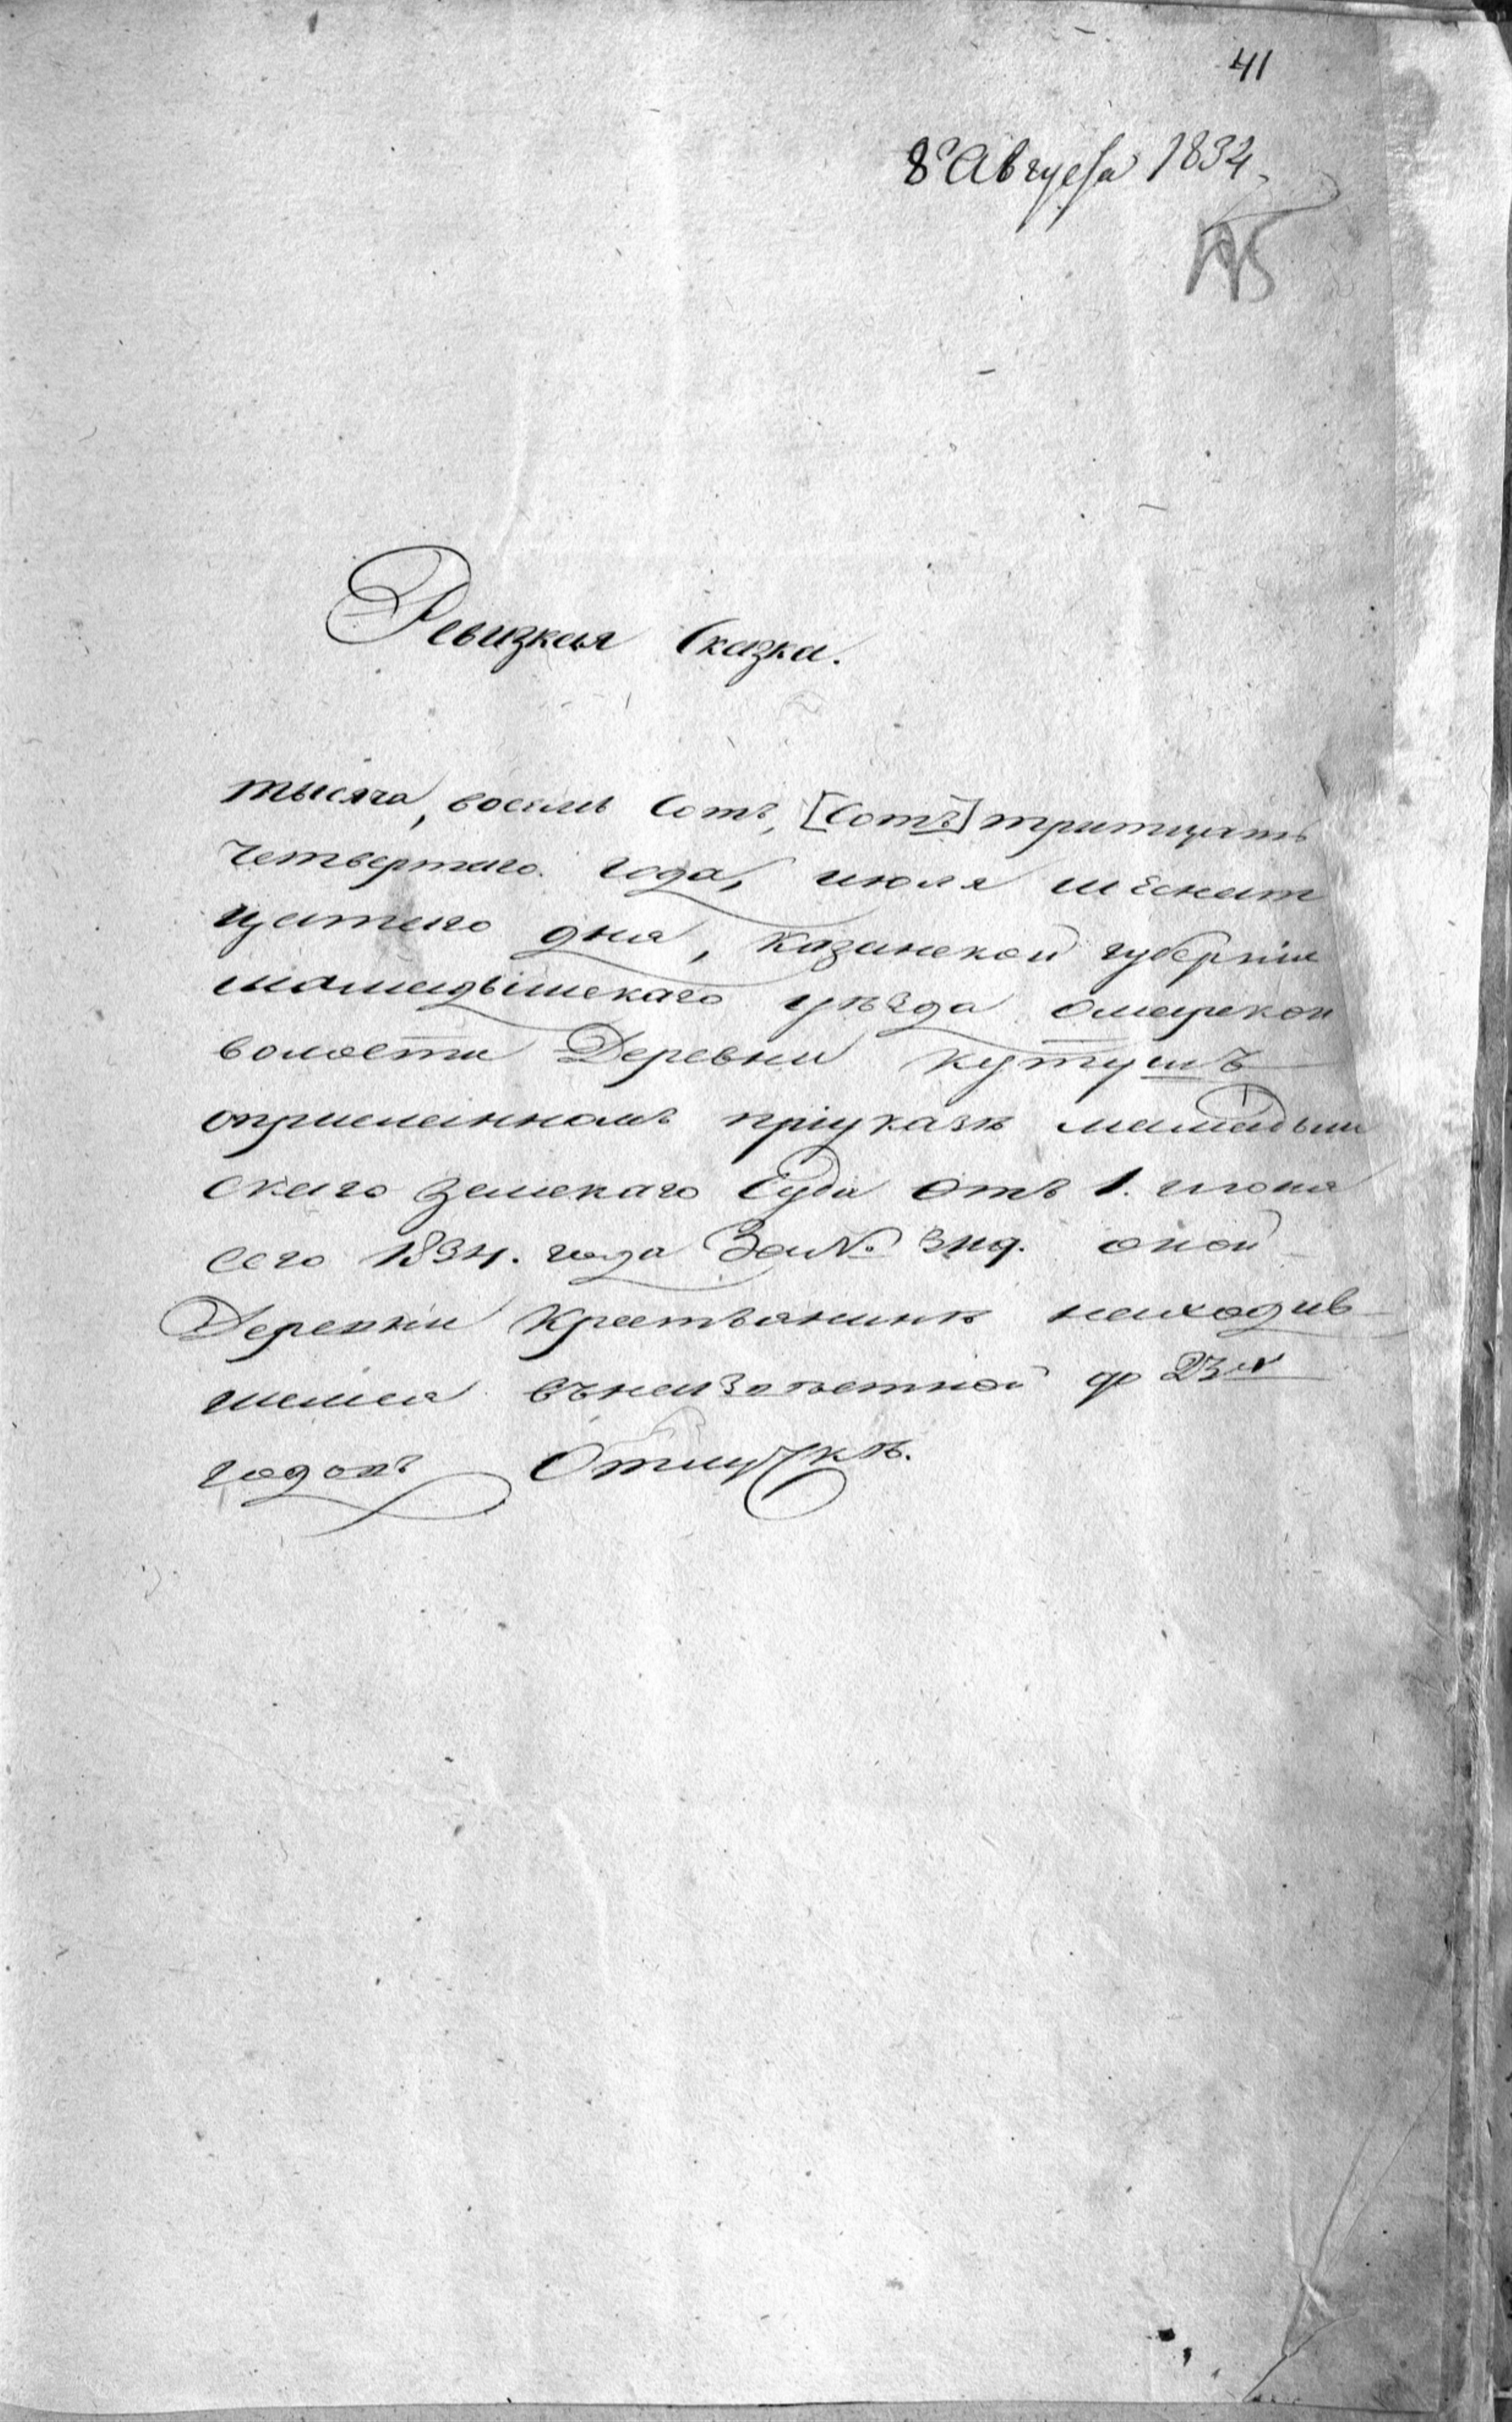 41
8 Августа 1834.
Ревизкая Сказка.
тысяча, восемь Сотъ, [Сотъ] тритцать
четвертаго года, июля шеснат
цатаго дня, казанской губернии
мамадышскаго уѣзда омарской
волости Деревни кутушъ
оприсланномъ приуказѣ мамадыш
скаго Земскаго Суда отъ 1. июня
сего 1834. года За №. оной
Деревни крестьянинѣ находив
шемся въ до 23х
годовъ Отлучкѣ.